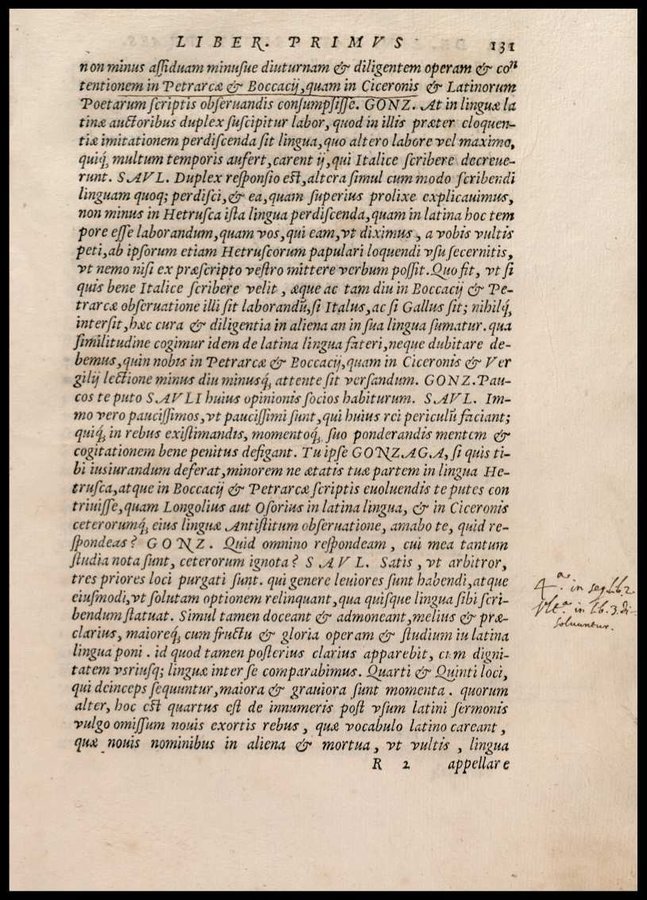 LIBER. PRIMVS 131
non minus aſſiduam minusue diuturnam & diligentem operam & cōⁿ
tentionem in Petrarcæ & Boccacij, quam in Ciceronis & Latinorum
Poetarum ſcriptis obſeruandis conſumpſiſſe. GONZ. At in linguæ la
tinæ auctoribus duplex ſuſcipitur labor, quod in illis præter eloquen-
tiæ imitationem perdiſcenda ſit lingua, quo altero labore vel maximo,
quiq́; multum temporis aufert, carent ij, qui Italice ſcribere decreue-
runt. SAVL. Duplex reſponſio eſt, altera ſimul cum modo ſcribendi
linguam quoq; perdiſci, & ea, quam ſuperius prolixe explicauimus,
non minus in Hetruſca iſta lingua perdiſcenda, quam in latina hoc tem
pore eſſe laborandum, quam vos, qui eam, vt diximus, a vobis vultis
peti, ab ipſorum etiam Hetruſcorum papulari loquendi vſu ſecernitis,
vt nemo niſi ex præſcripto veſtro mittere verbum poſſit. Quo fit, vt ſi
quis bene Italice ſcribere velit, æque ac tam diu in Boccacij & Pe-
trarcæ obſeruatione illi ſit laborandū, ſi Italus, ac ſi Gallus ſit; nihilq́;
interſit, hæc cura & diligentia in aliena an in ſua lingua ſumatur. qua
ſimilitudine cogimur idem de latina lingua fateri, neque dubitare de-
bemus, quin nobis in Petrarcæ & Boccacij, quam in Ciceronis & Ver
gilij lectione minus diu minusq́; attente ſit verſandum. GONZ. Pau-
cos te puto SAVLI huius opinionis ſocios habiturum. SAVL. Im-
mo vero pauciſſimos, vt pauciſſimi ſunt, qui huius rei periculū faciant;
quiq́; in rebus exiſtimandis, momentoq́; ſuo ponderandis mentem &
cogitationem bene penitus defigant. Tu ipſe GONZAGA, ſi quis ti-
bi iusiurandum deferat, minorem ne ætatis tuæ partem in lingua He-
truſca, atque in Boccacij & Petrarcæ ſcriptis euoluendis te putes con
triuiſſe, quam Longolius aut Oſorius in latina lingua, & in Ciceronis
ceterorumq́; eius linguæ Antiſtitum obſeruatione, amabo te, quid re-
ſpondeas? GONZ. Quid omnino reſpondeam, cui mea tantum
ſtudia nota ſunt, ceterorum ignota? SAVL. Satis, vt arbitror,
tres priores loci purgati ſunt. qui genere leuiores ſunt habendi, atque
eiuſmodi, vt ſolutam optionem relinquant, qua quiſque lingua ſibi ſcri-
bendum ſtatuat. Simul tamen doceant & admoneant, melius & præ-
clarius, maioreq́; cum fructu & gloria operam & ſtudium iu latina
lingua poni. id quod tamen poſterius clarius apparebit, cum digni-
tatem vtriuſq; linguæ inter ſe comparabimus. Quarti & Quinti loci,
qui deinceps ſequuntur, maiora & grauiora ſunt momenta. quorum
alter, hoc eſt quartus eſt de innumeris poſt vſum latini ſermonis
vulgo omiſſum nouis exortis rebus, quæ vocabulo latino careant,
quæ nouis nominibus in aliena & mortua, vt vultis, lingua
R 2 appellare
4.ᵃ in seq. Lib. 2
Vlt.ᵃ in Lib. 3. di-
soluuntur.